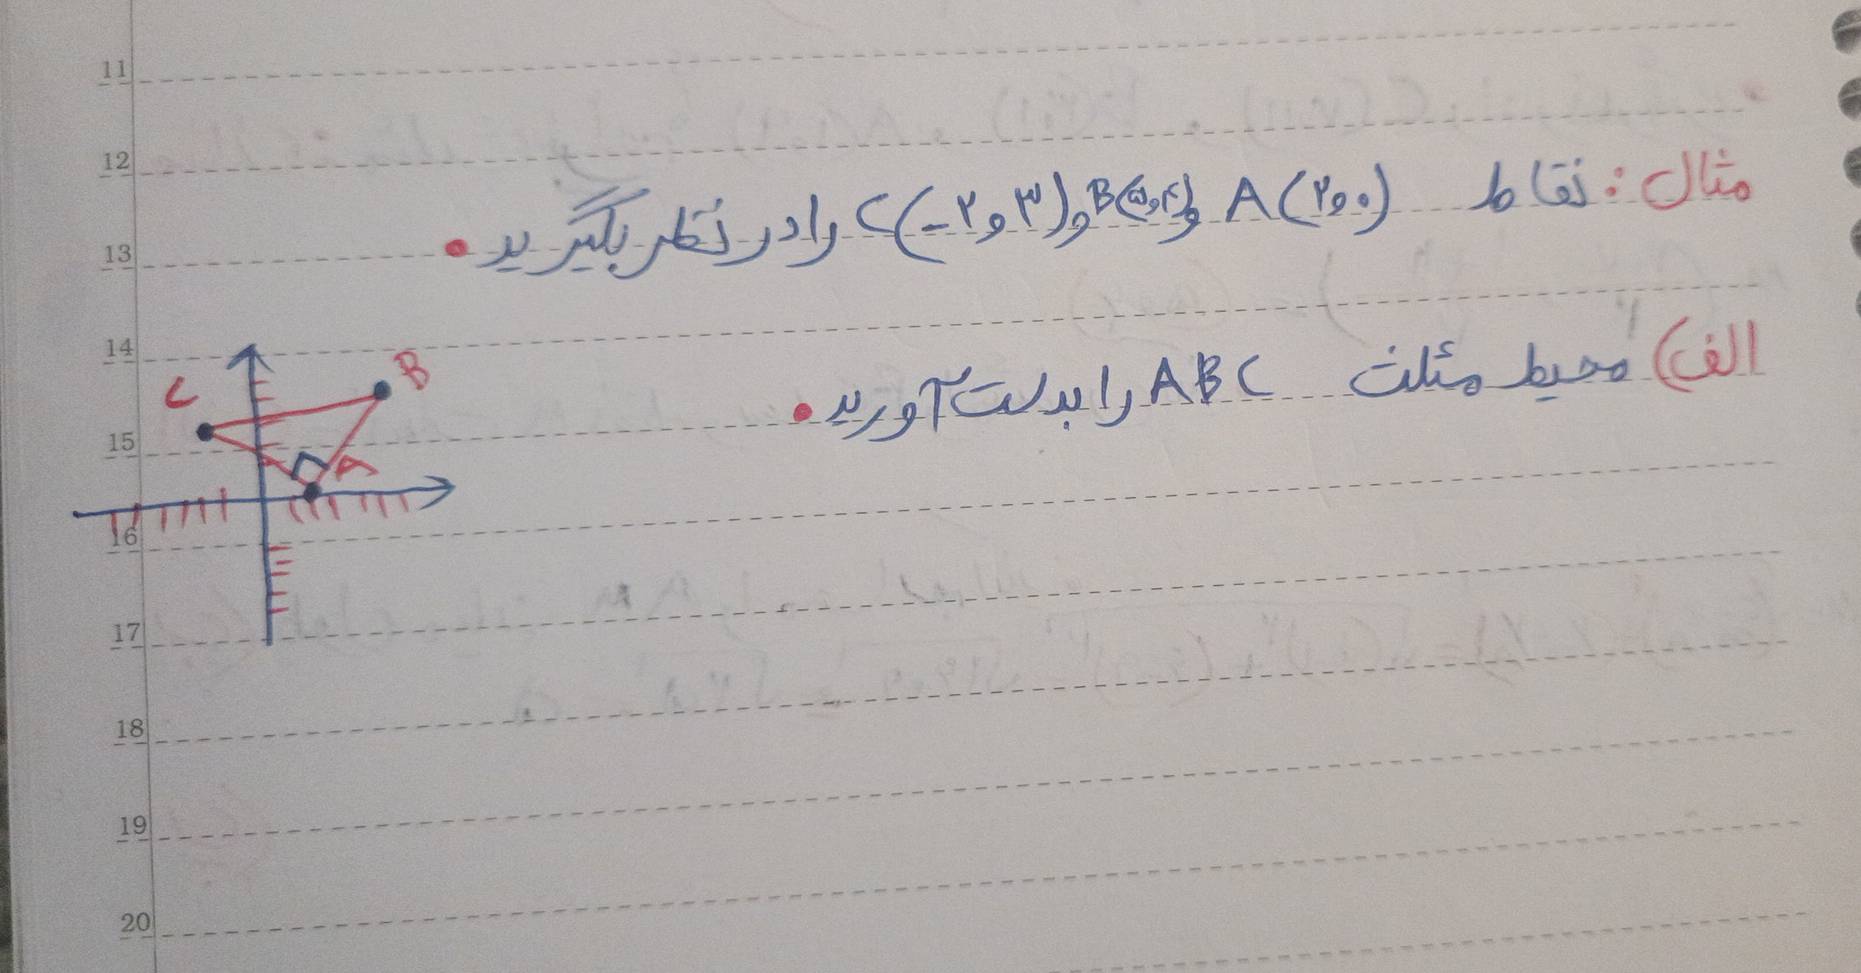 11
12
مثال : نقاط A(۲و۰) و B(۵و۴) و C(-۲و۳) را در نظر بگیرید.
13
14
الف) محیط مثلث ABC را بدست آورید.
C
B
15
A
16
17
18
19
20